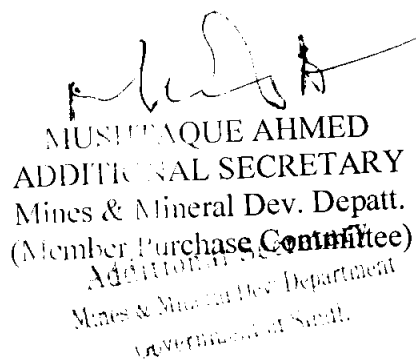 MUSHTAQUE AHMED
ADDITIONAL SECRETARY
Mines & Mineral Dev. Depatt.
(Member Purchase Committee)
Additional Secretary
Mines & Mineral Dev. Department
Government of Sindh.